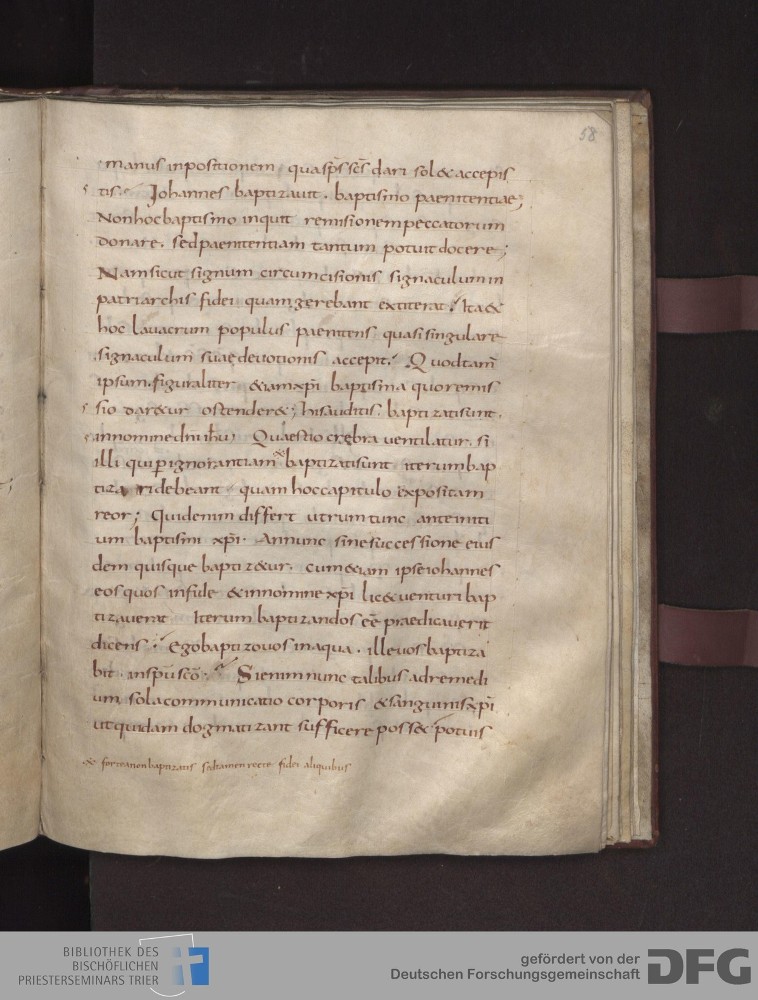 58
manus inpositionem quasp̄s sc̄s dari sol& accepis
tis. Iohannes baptizauit. baptismo paenitentiae;
Nonhocbaptismo inquit remissionempeccatorum
donare. sedpaenitentiam tantum potuitdocere;
Namsicut signum circumcisionis signaculumin
patriarchis fidei quamgerebant extiterat. Ita&
hoc lauacrum populus paenitens quasisingulare
signaculum suaedeuotionis accepit. Quodtam̄
ipsum.figuraliter &iamxp̄i baptisma quoremis
sio dar&ur ostender&; hisauditis. baptizatisunt.
innominedn̄i ih̄u; Quaestio crebra uentilatur. si
illi quip̱ignorantiam baptizatisunt iterumbap
tizari debeant quam hoccapitulo expositam
reor; Quidenim differt utrumtunc anteiniti
um baptismi xp̄i. Annunc sinesuccessione eius
dem quisque baptiz&ur. cum&iam ipseiohannes
eosquos infide &innomine xp̄i lic&uenturi bap
tizauerat Iterum baptizandos eē praedicauerit
dicens. Egobaptizouos inaqua. illeuosbaptiza
bit. insp̄u sc̄o. Sienimnunc talibus adremedi
um solacommunicatio corporis &sanguinisxp̄i
utquidam dogmatizant sufficere poss& potuis
& forte nonbaptizatis sedtamen recte fidei aliquibus
BIBLIOTHEK DES
BISCHÖFLICHEN
PRIESTERSEMINARS TRIER
gefördert von der
Deutschen Forschungsgemeinschaft
DFG